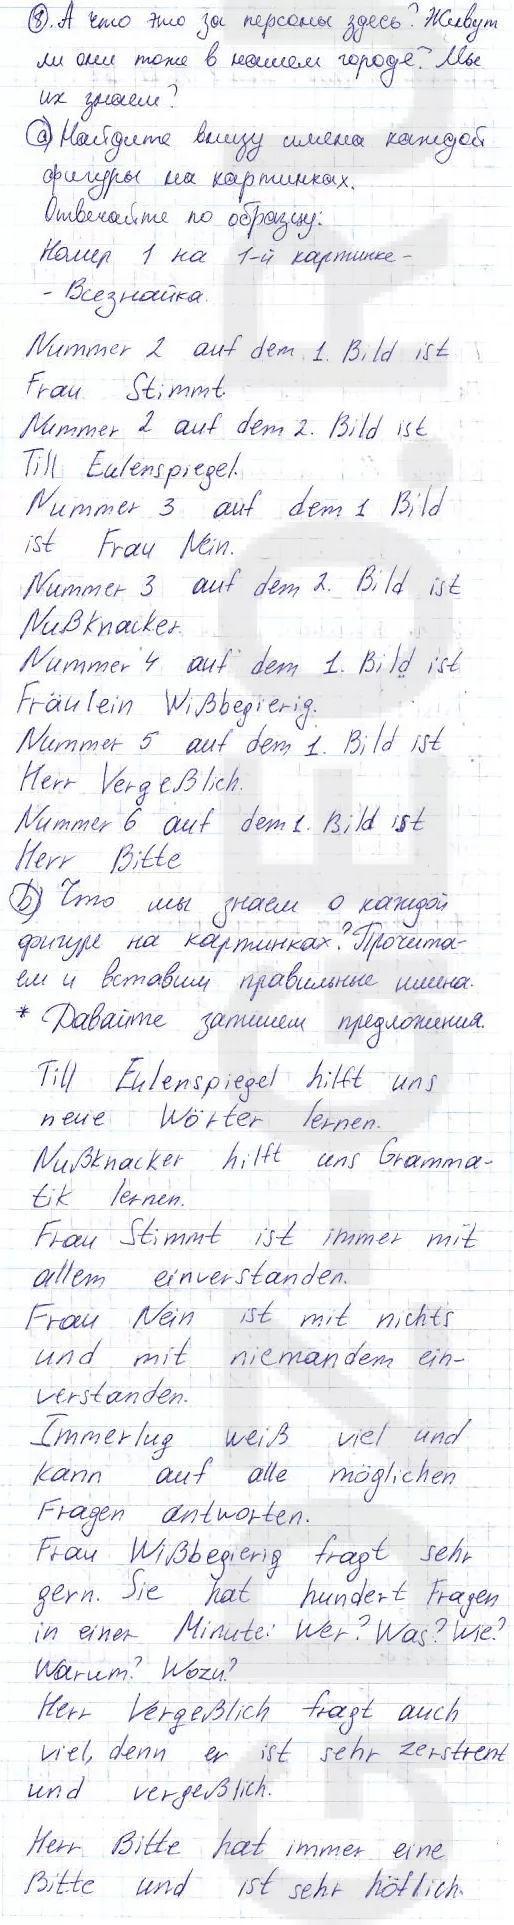 8. А что это за персоны здесь? Живут
ли они тоже в нашем городе? Мы
их знаем?
a) Найдите внизу имена каждой
фигуры на картинках.
Отвечайте по образцу:
Номер 1 на 1-й картинке -
- Всезнайка.
Nummer 2 auf dem 1. Bild ist
Frau Stimmt.
Nummer 2 auf dem 2. Bild ist
Till Eulenspiegel.
Nummer 3 auf dem 1 Bild
ist Frau Nein.
Nummer 3 auf dem 2. Bild ist
Nußknacker.
Nummer 4 auf dem 1. Bild ist
Fräulein Wißbegierig.
Nummer 5 auf dem 1. Bild ist
Herr Vergeßlich.
Nummer 6 auf dem 1. Bild ist
Herr Bitte
b) Что мы знаем о каждой
фигуре на картинках? Прочита-
ем и вставим правильные имена.
* Давайте запишем предложения.
Till Eulenspiegel hilft uns
neue Wörter lernen.
Nußknacker hilft uns Gramma-
tik lernen.
Frau Stimmt ist immer mit
allem einverstanden.
Frau Nein ist mit nichts
und mit niemandem ein-
verstanden.
Immerlug weiß viel und
kann auf alle möglichen
Fragen antworten.
Frau Wißbegierig fragt sehr
gern. Sie hat hundert Fragen
in einer Minute: Wer? Was? Wie?
Warum? Wozu?
Herr Vergeßlich fragt auch
viel, denn er ist sehr zerstreut
und vergeßlich.
Herr Bitte hat immer eine
Bitte und ist sehr höflich.